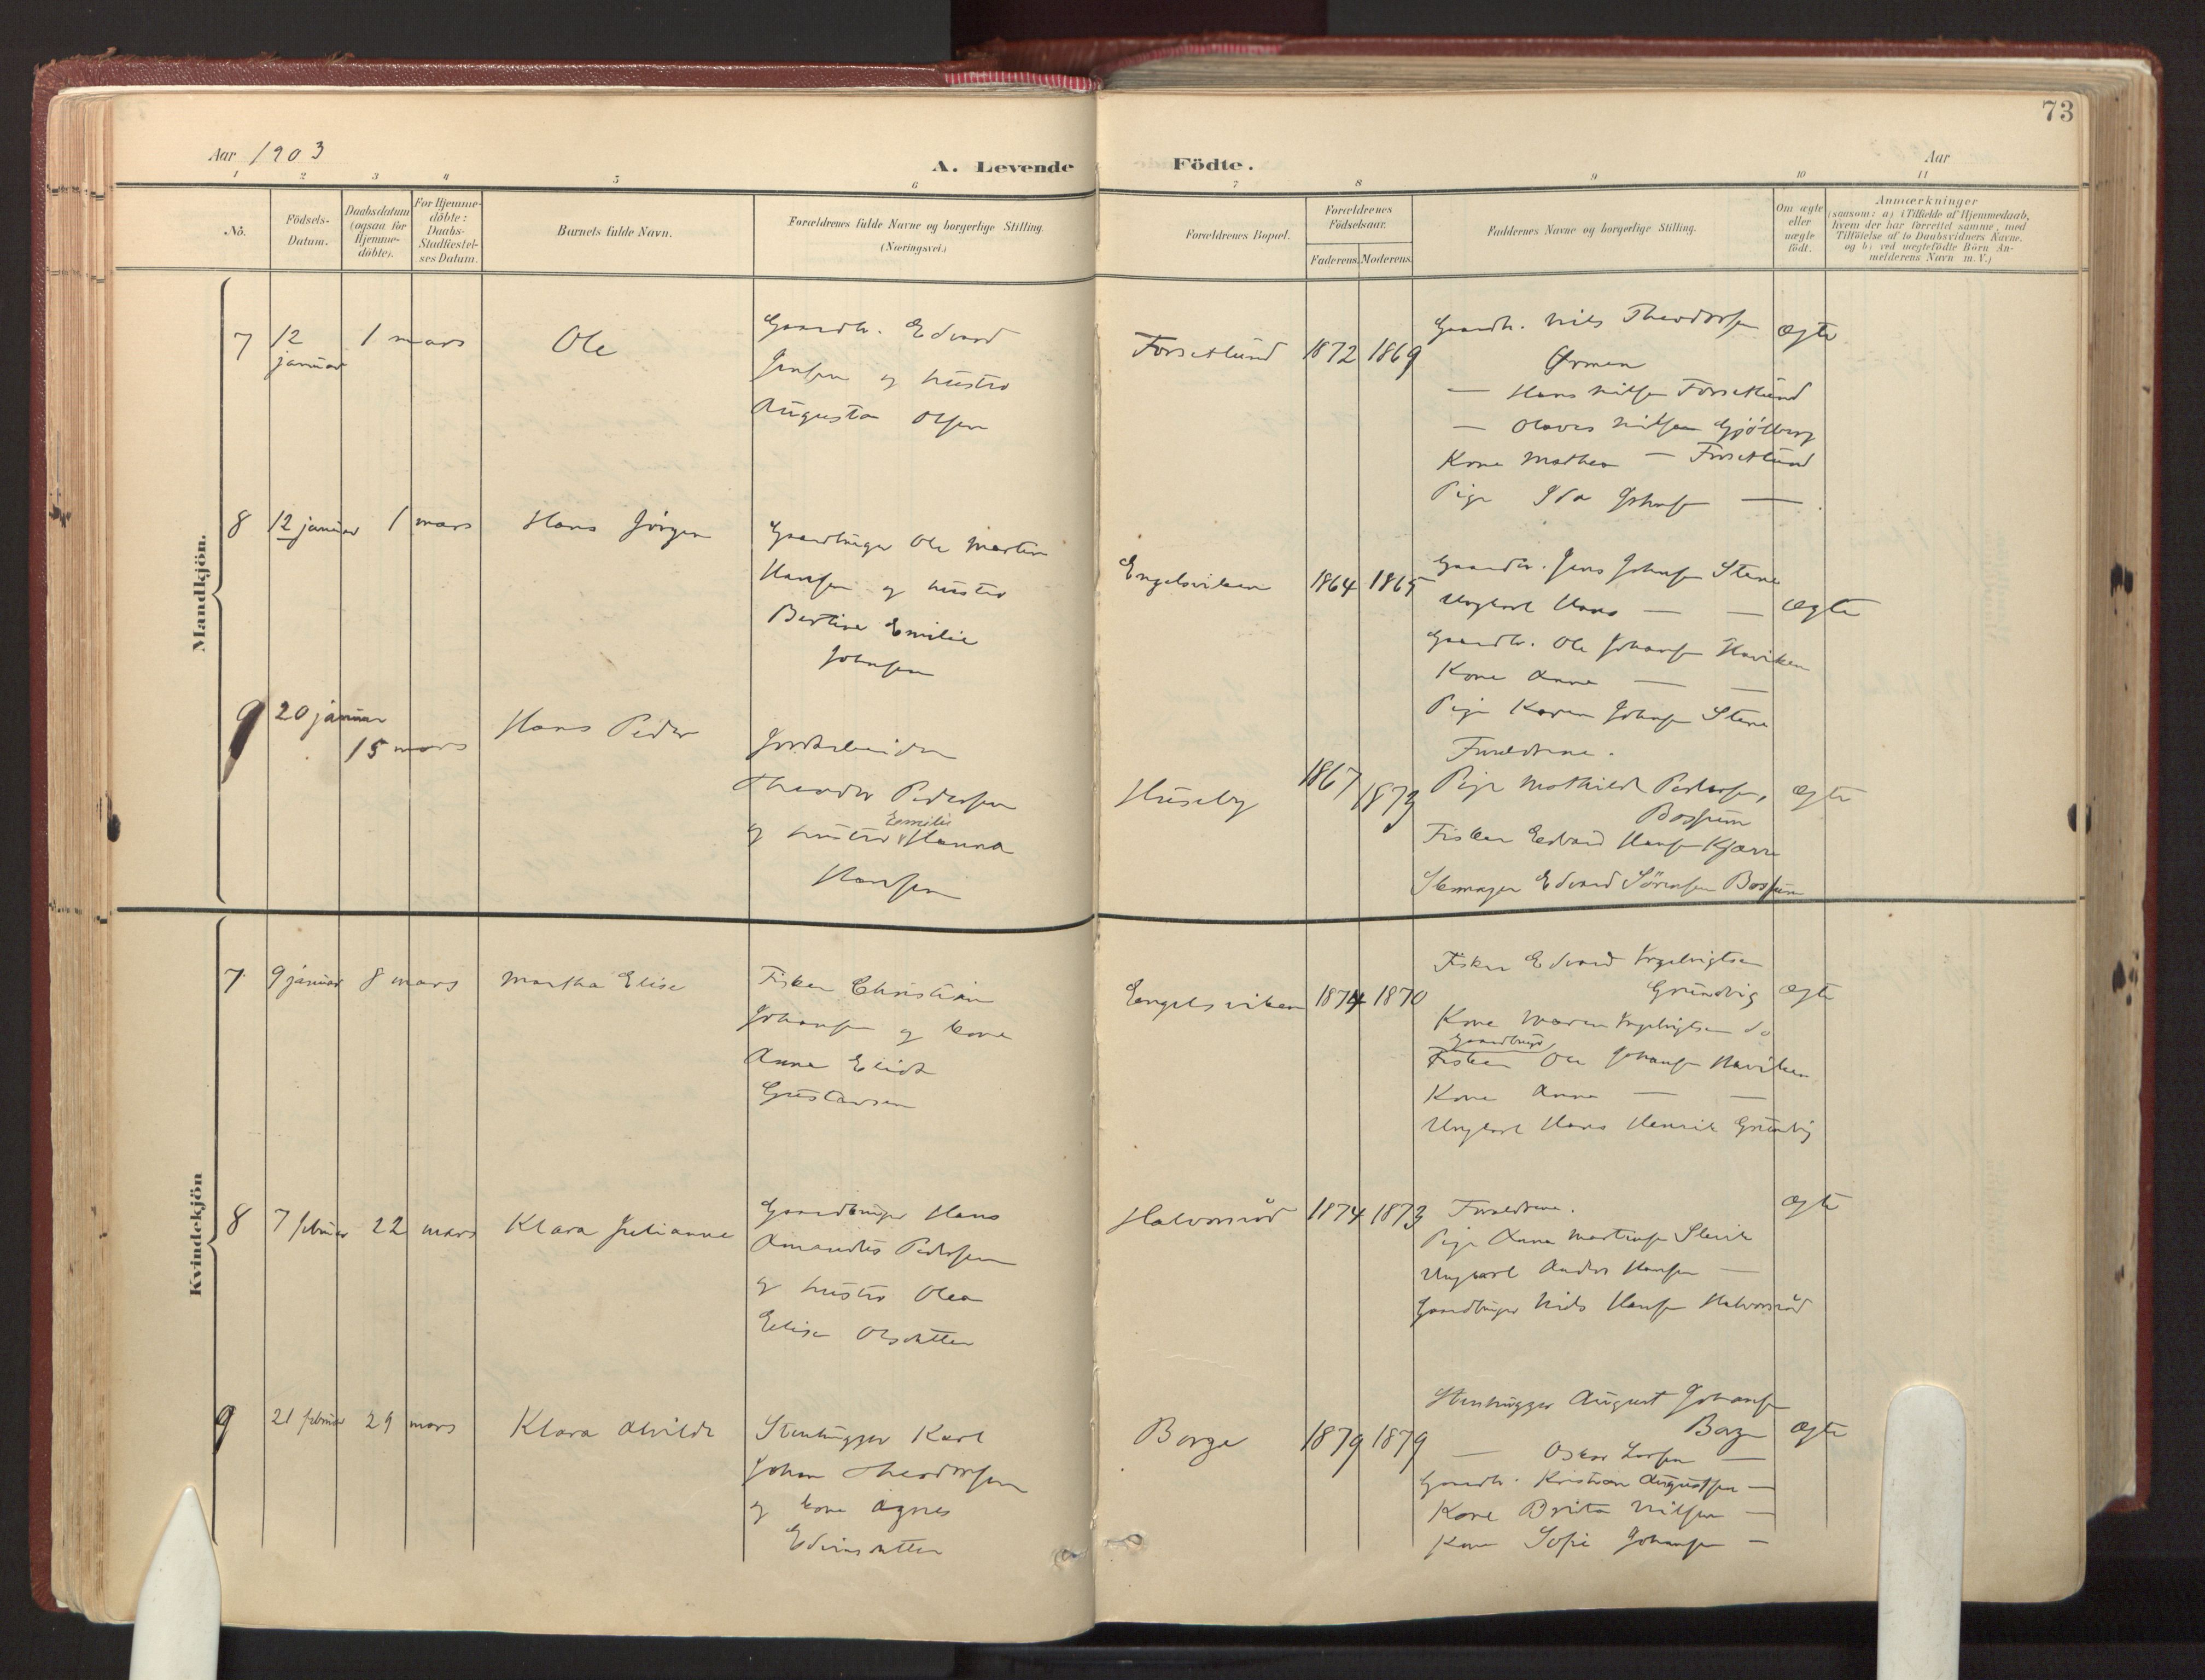 73
Aar 1903
A. Levende Födte.
Aar
1 2 3 4 5 6 7 8 9 10 11
Nö.
Födsels-Datum.
Daabsdatum (ogsaa for Hjemme-döbte).
For Hjemme-döbte: Daabs-Stadfæstel-ses Datum.
Barnets fulde Navn.
Forældrenes fulde Navne og borgerlige Stilling. (Næringsvei.)
Forældrenes Bopæl.
Forældrenes Födselsaar.
Faderens. Moderens.
Faddernes Navne og borgerlige Stilling.
Om ægte eller uægte födt.
Anmærkninger
(saasom: a) i Tilfælde af Hjemmedaab,
hvem der har forrettet samme, med
Tilföielse af to Daabsvidners Navne,
og b) ved uægtefödte Börn An-
melderens Navn m. V.)
Mandkjön.
7
12 januar
1 mars
Ole
Gaardbr. Edvard
Jensen og hustru
Augusta Olsen
Forsetlund
1872 1869
Gaardb. Nils Theodorsen
Ørmen
— Hans Nilsen Forsetlund
— Olaves Nilsen
Kone Mathea — Forsetlund
Pige Ida Johansen —
ægte
8
12 januar
1 mars
Hans Jörgen
Gaardbruger Ole Martin
Hansen og hustru
Bertine Emilie
Johnsen
Engelsviken
1864 1865
Gaardbr. Jens Johnsen Stene
Ungkarl Hans — —
Gaardbr. Ole Johansen Haviken
Kone Anna — —
Pige Karen Johnsen Stene
Forældrene.
ægte
9
20 januar
15 mars
Hans Peder
Jordarbeider
Theodor Pedersen
og hustru Emilie Hanna
Hansen
Huseby
1867 1873
Pige Mathilde Pedersen,
Bossum
Fisker Edvard Hansen Kjærre
Edvard Sörensen Bossum
ægte
Kvindekjön
7
9 januar
8 mars
Martha Elise
Fisker Christian
Johansen og kone
Anna Elida
Gustavsen
Engelsviken
1874 1870
Fisker Edvard Ingebrigtsen
Grundvig
Kone Maren Ingebrigtsen do
Gaardbruger
Fisker Ole Johansen Haviken
Kone Anna — —
Ungkarl Hans Henrik Grundvig
ægte
8
7 februar
22 mars
Klara Julianne
Gaardbruger Hans
Amandus Pedersen
og hustru Olea
Elise Olsdatter
Halvorsröd
1874 1873
Forældrene.
Pige Anna Martinsen Slevik
Ungkarl Anders Hansen —
Gaardbruger Nils Hansen Halvorsröd
ægte
9
21 februar
29 mars
Klara Alvilde
Stenhugger Karl
Johan Theodorsen
og kone Agnes
Edvinsdatter
Borge
1879 1879
Stenhugger August Johansen
Borge
— Oskar Larsen —
Gaardbr. Kristian Augustsen —
Kone Brita Nilsen —
Kone Sofie Johansen —
ægte